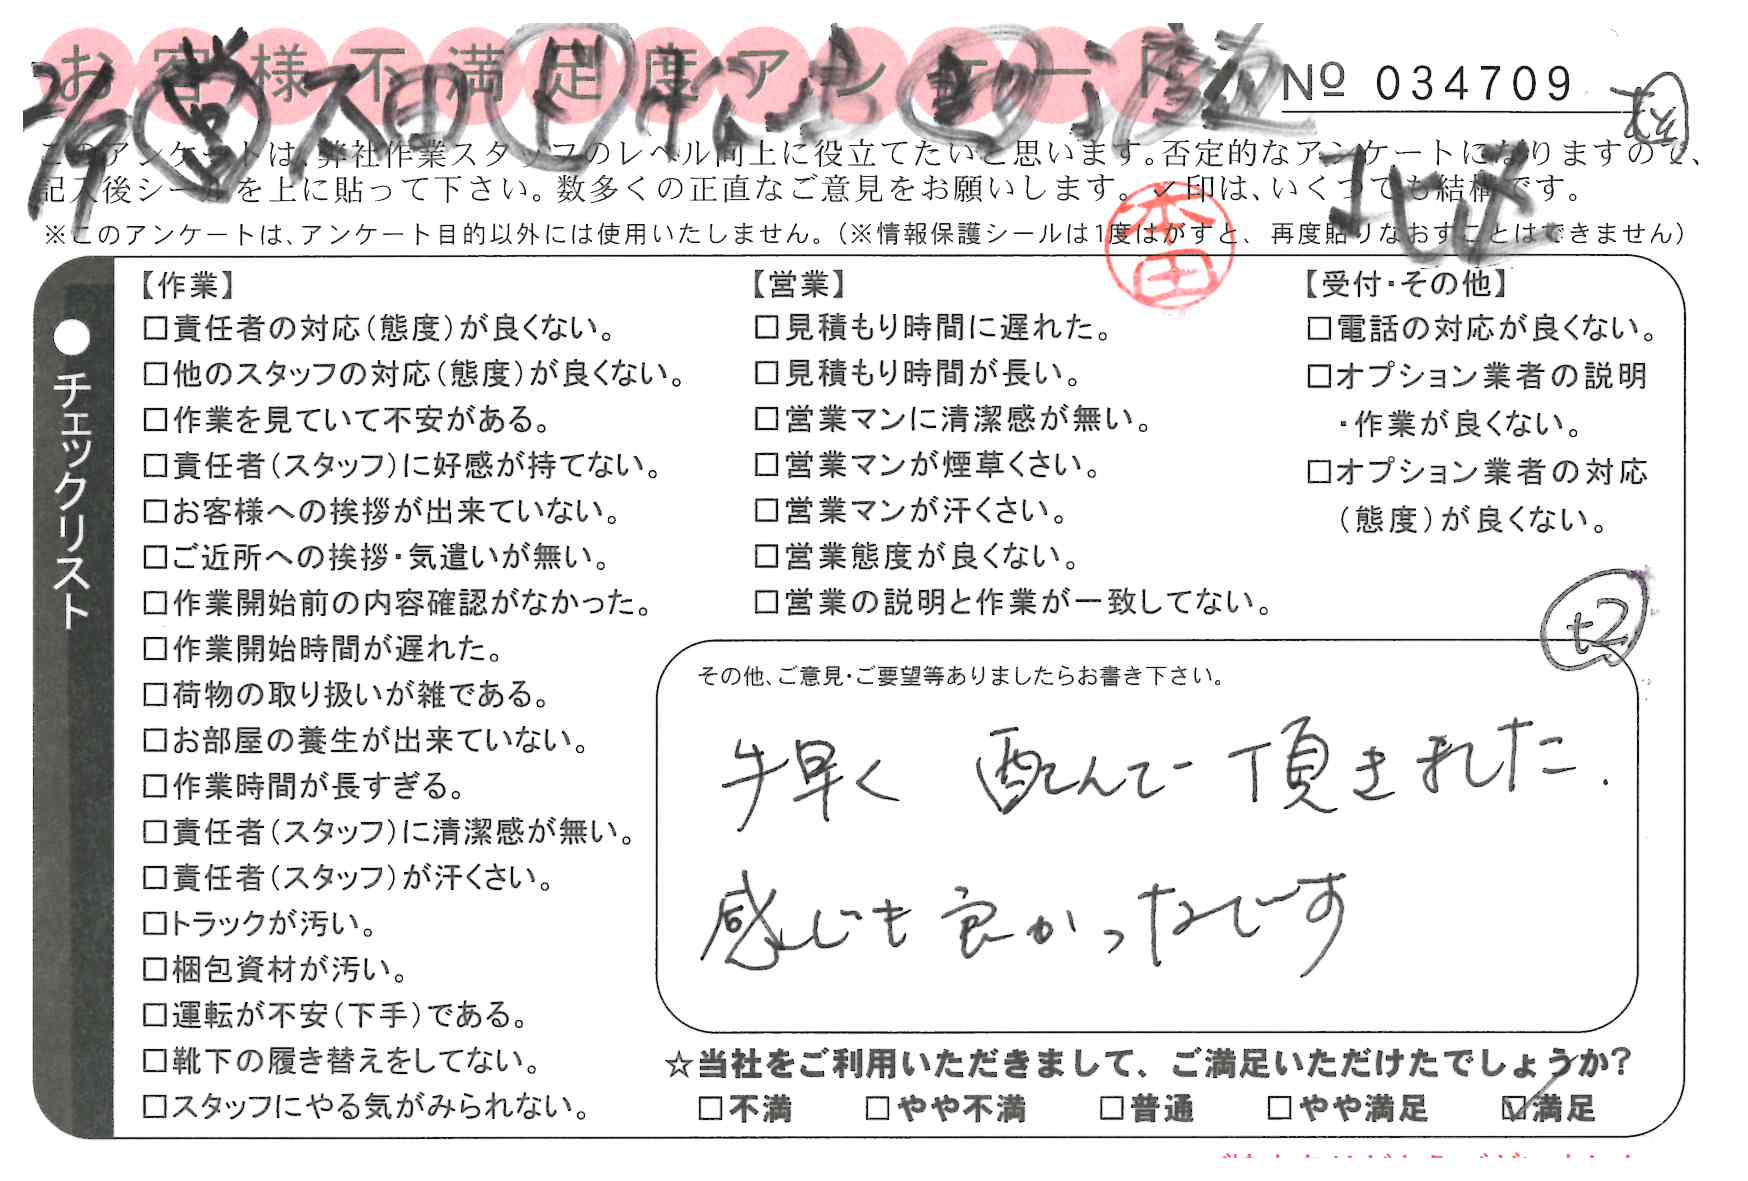 お客様不満足度アンケート
№ 034709
2/9 営 本田
北区
このアンケートは、弊社作業スタッフのレベル向上に役立てたいと思います。否定的なアンケートになりますので、
記入後シールを上に貼って下さい。数多くの正直なご意見をお願いします。✓印は、いくつでも結構です。
※このアンケートは、アンケート目的以外には使用いたしません。(※情報保護シールは1度はがすと、再度貼りなおすことはできません)
本田
●チェックリスト
【作業】
□責任者の対応(態度)が良くない。
□他のスタッフの対応(態度)が良くない。
□作業を見ていて不安がある。
□責任者(スタッフ)に好感が持てない。
□お客様への挨拶が出来ていない。
□ご近所への挨拶・気遣いが無い。
□作業開始前の内容確認がなかった。
□作業開始時間が遅れた。
□荷物の取り扱いが雑である。
□お部屋の養生が出来ていない。
□作業時間が長すぎる。
□責任者(スタッフ)に清潔感が無い。
□責任者(スタッフ)が汗くさい。
□トラックが汚い。
□梱包資材が汚い。
□運転が不安(下手)である。
□靴下の履き替えをしてない。
□スタッフにやる気がみられない。
【営業】
□見積もり時間に遅れた。
□見積もり時間が長い。
□営業マンに清潔感が無い。
□営業マンが煙草くさい。
□営業マンが汗くさい。
□営業態度が良くない。
□営業の説明と作業が一致してない。
【受付・その他】
□電話の対応が良くない。
□オプション業者の説明
・作業が良くない。
□オプション業者の対応
(態度)が良くない。
t2
その他、ご意見・ご要望等ありましたらお書き下さい。
手早く 運んで頂きました.
感じも良かったです
☆当社をご利用いただきまして、ご満足いただけたでしょうか?
□不満 □やや不満 □普通 □やや満足 ☑満足